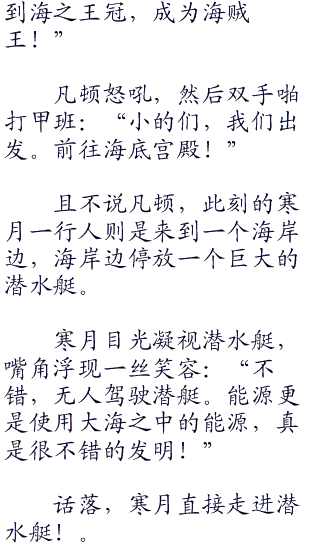 到海之王冠，成为海贼
王！”
凡顿怒吼，然后双手啪
打甲班：“小的们，我们出
发。前往海底宫殿！”
且不说凡顿，此刻的寒
月一行人则是来到一个海岸
边，海岸边停放一个巨大的
潜水艇。
寒月目光凝视潜水艇，
嘴角浮现一丝笑容：“不
错，无人驾驶潜艇。能源更
是使用大海之中的能源，真
是很不错的发明！”
话落，寒月直接走进潜
水艇！。